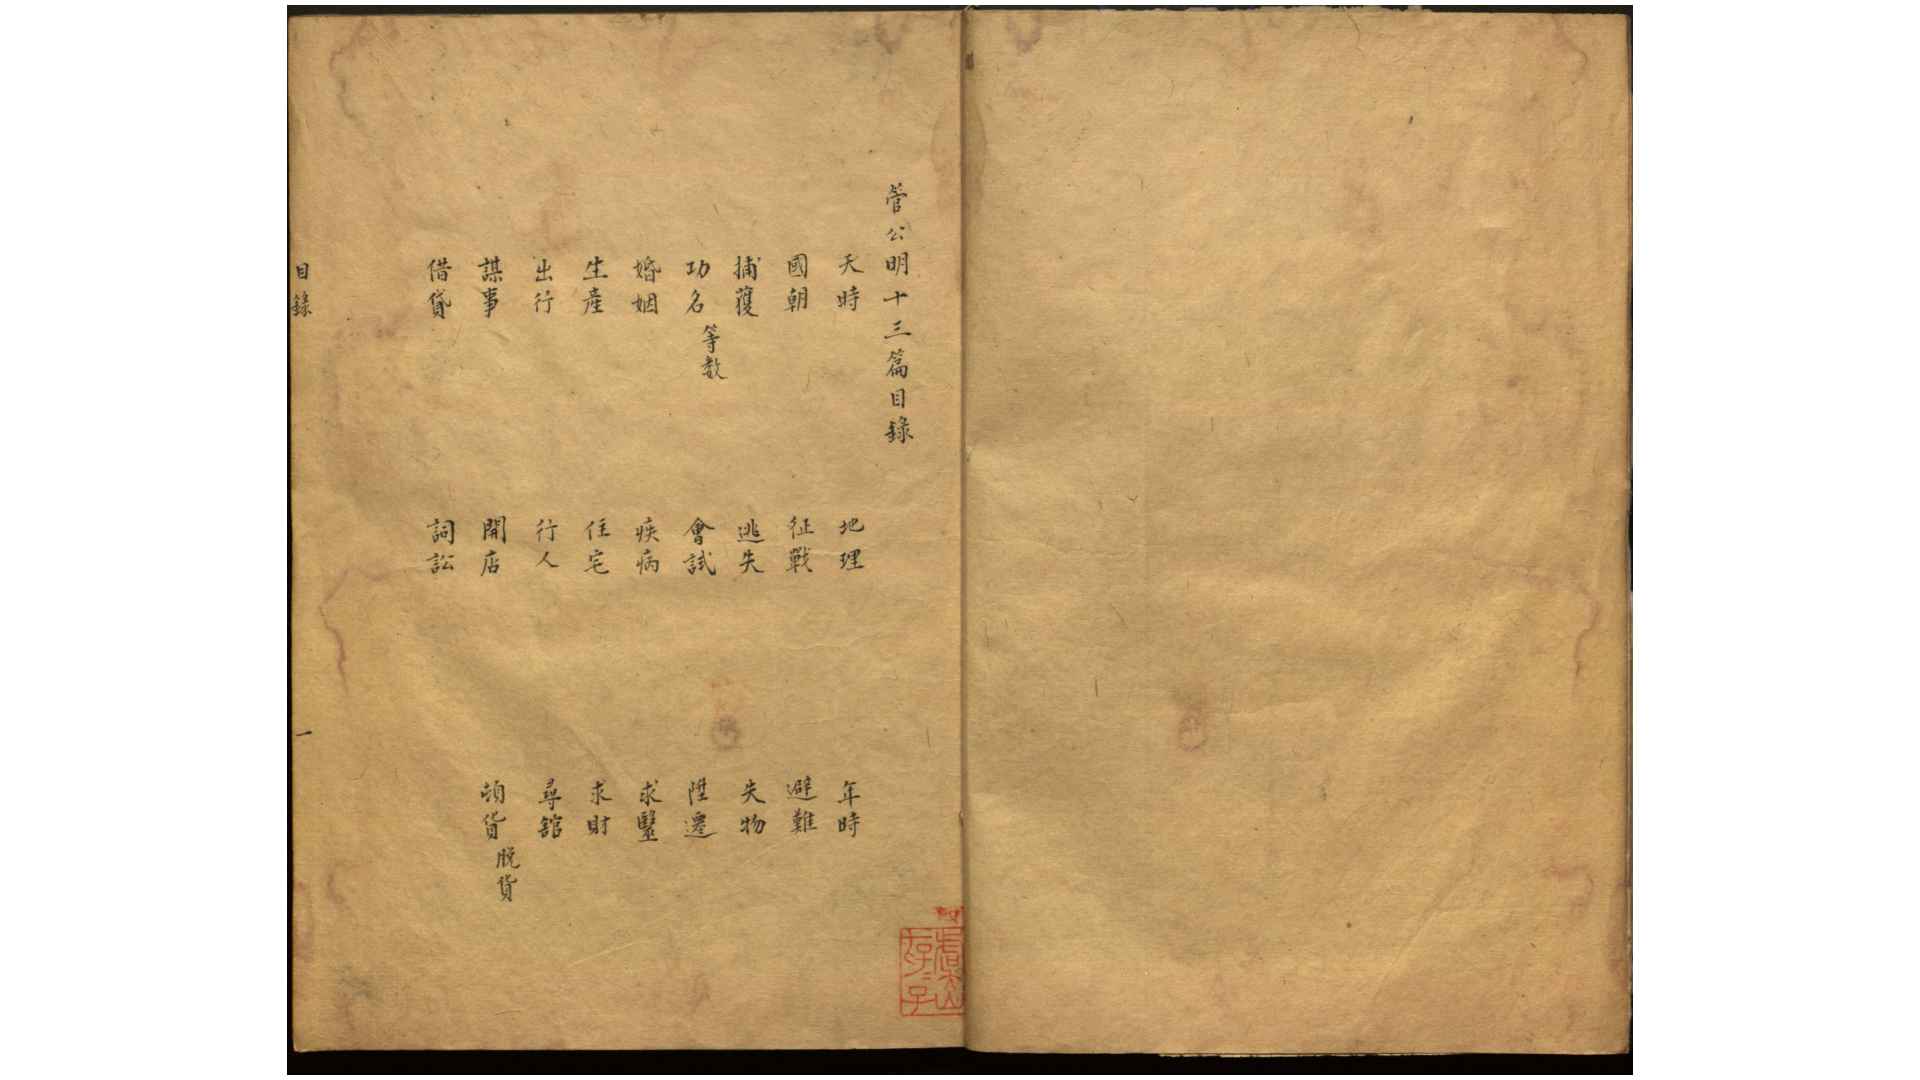 管公明十三篇目錄
天時 地理 年時
國朝 征戰 避難
捕獲 逃失 失物
功名等数 會試 陞遷
婚姻 疾病 求毉
生產 住宅 求財
出行 行人 尋舘
謀事 開店 貨脱貨
借貸 詞訟
目錄
一